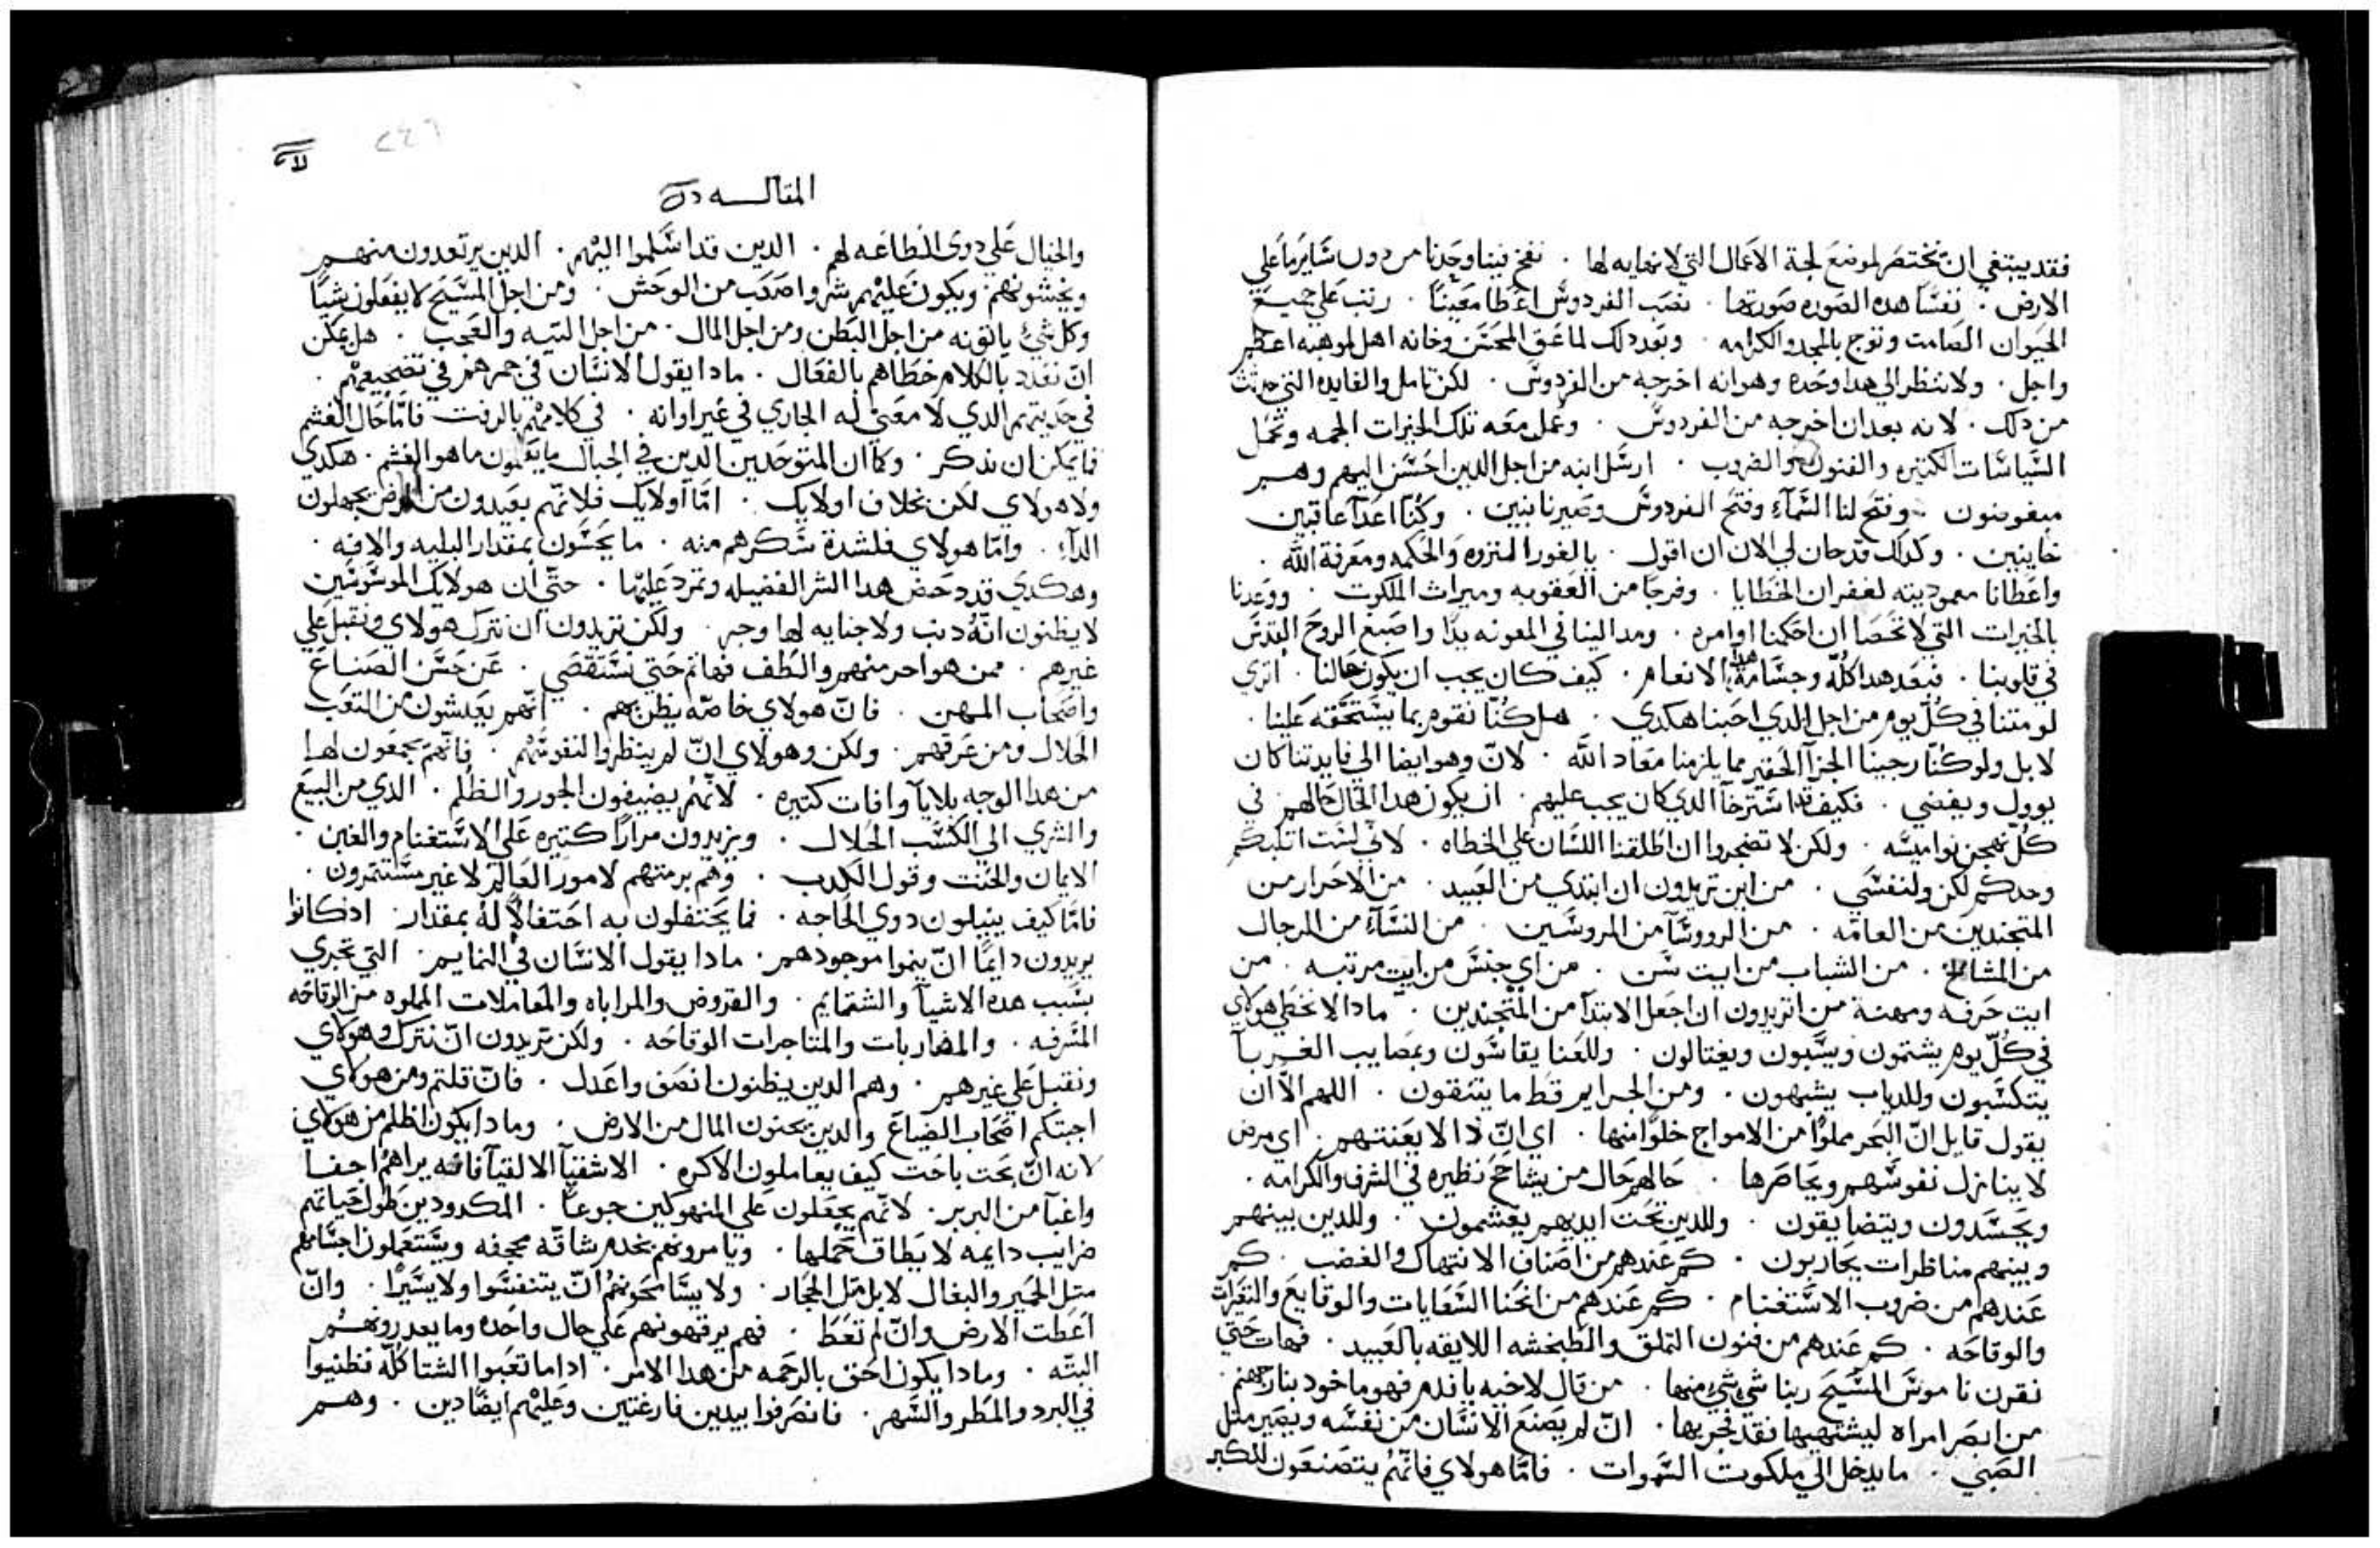 فقد ينبغي ان نختصر لموضع لجة الاعمال التي لانهايه لها . نفخ فينا وحدنا من دون ساير ما علي
الارض . نفسا هده الصوره صورتها . نصب الفردوس اعطا معينا . رتب علي جميع
الحيوان الصامت وتوج بالمجد والكرامه . وبعد دلك لما عق المحتن وخانه اهل لموهبه اعظم
واجل . ولا تنظر الي هدا وحده وهوانه اخرجه من الفردوس . لكن تامل والفايده التي حدثت
من دلك . لانه بعد ان اخرجه من الفردوس . وعمل معه تلك الخيرات الجمه وعمل
السياسات الكتيره والفنون والضروب . ارسل ابنه من اجل الدين احسن اليهم وهم
مبغوضون . وفتح لنا السماء وفتح الفردوس وصيرنا بنين . وكنا اعدآ عاقين
خاينين . وكدلك قد حان لي الان ان اقول . يالغور المنزوه والحكمه ومعرفة الله .
واعطانا معموديته لغفران الخطايا . وفرجا من العقوبه وميراث الملكوت . ووعدنا
بالخيرات التي لا تحصا ان احكمنا اوامره . ومد الينا في المعونه يدا واصبغ الروح القدس
في قلوبنا . فبعد هدا كله وجسامة هدا الانعام . كيف كان يجب ان يكون حالنا . اتري
لو متنا في كل يوم من اجل الدي احبنا هكدي . هل كنا نقوم بما يستحقه علينا .
لا بل ولو كنا رجينا الجزآ الحقير مما يلزمنا معاد الله . لان وهو ايضا الي فايدتنا كان
يوول ويفضي . فكيف قد استرخآ الدي كان يجب عليهم . ان يكون هدا الحال حالهم في
كل نواميسه . ولكن لا تضجروا ان اطلقنا اللسان علي الخطاه . لاني لست اتلبكم
وحدكم لكن ولنفسي . من اين تريدون ان ابتدي من العبيد . من الاحرار من
المتجندين من العامه . من الرووسآ من المروسين . من النسآء من الرجال
من المشايخ . من الشباب من ايت سن . من اي جنس من ايت مرتبه . من
ايت حرفه ومهنة من اتريدون ان اجعل الابتدآ من المتجندين . مادا لا نخطي هولاي
في كل يوم يشتمون ويسبون ويغتالون . وللعنا يقاسون وبمصايب الغربآ
يتكسبون وللدياب يشبهون . ومن الجراير قط ما يتنقون . اللهم الا ان
يقول قايل ان البحر مملوا من الامواج خلوا منها . اي ان دا لا يعنتهم . اي مرض
لا ينازل نفوسهم ويحاصرها . حالهم حال من يشاحح نظيره في الشرف والكرامه .
ويحسدون ويتضايقون . وللدين تحت ايديهم يغشمون . وللدين بينهم
وبينهم مناظرات يحاربون . كم عندهم من اصناف الانتهاك والغضب . كم
عندهم من ضروب الاستغنام . كم عندهم من انحنا السعايات والوقايع
والوقاحه . كم عندهم من فنون التملق والطبخشه اللايقه بالعبيد . فهات حتي
نقرن ناموس المسيح ربنا شي شي منها . من قال لاخيه يا ندم فهو ماخود بنار جهنم .
من ابصر امراه ليشتهيها فقد فجر بها . ان لم يضع الانسان من نفسه ويصير مثل
الصبي . ما يدخل الي ملكوت السموات . فاما هولاي فانهم يتصنعون للكبر
المقاله
والخيال علي دوي الطاعه لهم . الدين قد اسلموا اليهم . الدين يرتعدون منهم
ويخشونهم ويكون عليهم شر واصعب من الوحش . ومن اجل المسيح لا يفعلون شيا
وكل شي ياتونه من اجل البطن ومن اجل المال . من اجل التيه والعجب . هل يمكن
ان نعدد بالكلام خطاهم بالفعال . مادا يقول الانسان في في تضجيعهم .
في حديتهم الدي لا معني له الجاري في غير اوانه . في كلامهم بالرفت فاما حال الغشم
فما يمكن ان نذكر . وكما ان المتوحدين الدين في الجبال ما يعلمون ما هو الغشم . هكدي
ولا هولاي لكن بخلاف اولايك . اما اولايك فلانهم بعيدون من المرض يجهلون
الدآء . واما هولاي فلشدة سكرهم منه . ما يحسون بمقدار البليه والافه .
وهكدي قد دحض هدا الشر الفضيله وتمرد عليها . حتي ان هولايك الموسوسين
لا يظنون انه دنب ولا جنايه لها وجه . ولكن تريدون ان نترك هولاي ونقبل علي
غيرهم . ممن هو احر منهم والطف فهاتم حتي نستقصي . عن حسن الصناع
واصحاب المهن . فان هولاي خاصه يظن بهم . انهم يعيشون من التعب
الحلال ومن عرقهم . ولكن وهولاي ان لم ينظروا لنفوسهم . فانهم يجمعون لها
من هدا الوجه بلايا وافات كتيره . لانهم يضيفون الجور والظلم . الدي من البيع
والشري الي الكسب الحلال . ويزيدون مرارا كتيره علي الاستغنام والغبن .
الايمان والحنت وقول الكدب . وهم برمتهم لامور العالم لا غير مستتمرون .
فاما كيف ينيلون دوي الحاجه . فما يحتفلون به احتفالا له بمقدار . ادكانوا
يريدون دايما ان ينموا موجودهم . مادا يقول الانسان في النمايم . التي تجري
بسبب هده الاشيآ والشتمايم . والقروض والمراباه والمعاملات المملوه من الوقاحه
المسرفه . والمضاربات والمتاجرات الوقاحه . ولكن تريدون ان نترك وهولاي
ونقبل علي غيرهم . وهم الدين يظنون انصف واعدل . فان قلتم ومن هولاي
اجبتكم اصحاب الضياع والدين يجنون المال من الارض . ومادا يكون اظلم من هولاي
لانه ان بحت باحت كيف يعاملون الاكره . الاشقيآ الالقيآ فانه يراهم اجفا
واغبآ من البربر . لانهم يجعلون علي المنهوكين جوعا . المكدودين طول حياتهم
ضرايب دايمه لا يطاق حملها . ويامرونهم بخدم شاقه مجحفه ويستعملون اجسامهم
متل الحمير والبغال لا بل متل الحجار . ولا يسامحونهم ان يتنفسوا ولا يسيرا . وان
اعطت الارض وان لم تعط . فهم يرهقونهم علي حال واحده وما يعدرونهم
البته . ومادا يكون احق بالرحمه من هدا الامر . اداما تعبوا الشتا كله
في البرد والمطر والسهر . فانصرفوا بيدين فارغتين وعليهم ايضا دين . وهم